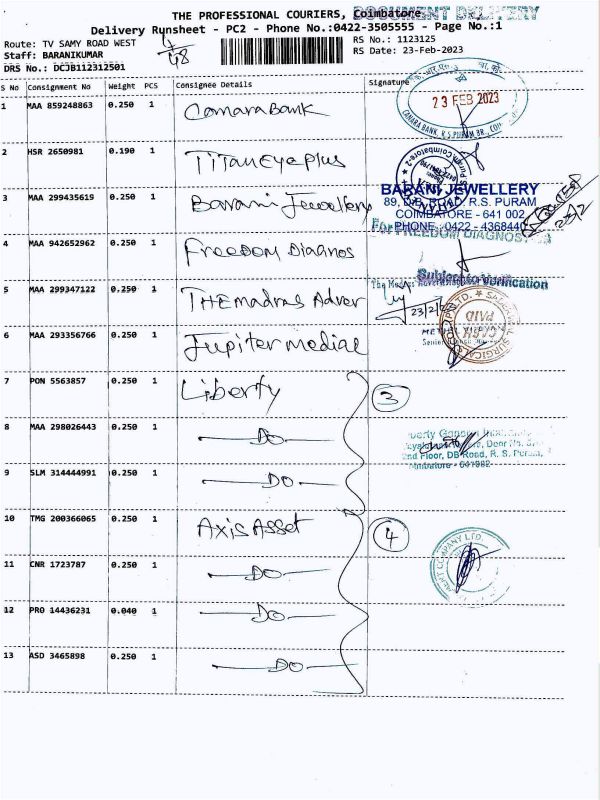 THE PROFESSIONAL COURIERS, Coimbatore
DOCUMENT DELIVERY
Delivery Runsheet - PC2 - Phone No.:0422-3505555 - Page No.:1
Route: TV SAMY ROAD WEST
RS No.: 1123125
Staff: BARANIKUMAR
RS Date: 23-Feb-2023
DRS No.: DCJB112312501
S No Consignment No Weight PCS Consignee Details Signature
1 MAA 859248863 0.250 1 Canara Bank
23 FEB 2023
CANARA BANK, R.S PURAM BR.,
2 HSR 2650981 0.190 1 Titan Eye Plus
3 MAA 299435619 0.250 1 Barani Jewellery
BARANI JEWELLERY
89, D.B. ROAD, R.S. PURAM
COIMBATORE - 641 002
PHONE 0422 - 4368440
4 MAA 942652962 0.250 1 Freedom Diagnos
For FREEDOM DIAGNOSTICS
Subject to Verification
5 MAA 299347122 0.250 1 THE madras Adver
The Madras Advertising
23/2/2
6 MAA 293356766 0.250 1 Jupiter medical
SURGICALS
CASH
PAID
7 PON 5563857 0.250 1 Liberty
3
8 MAA 298026443 0.250 1 DO
2nd Floor, DB Road, R. S. Puram,
Coimbatore - 641002
9 SLM 314444991 0.250 1 DO
10 TMG 200366065 0.250 1 Axis Asset
4
11 CNR 1723787 0.250 1 DO
12 PRO 14436231 0.040 1 DO
13 ASD 3465898 0.250 1 DO